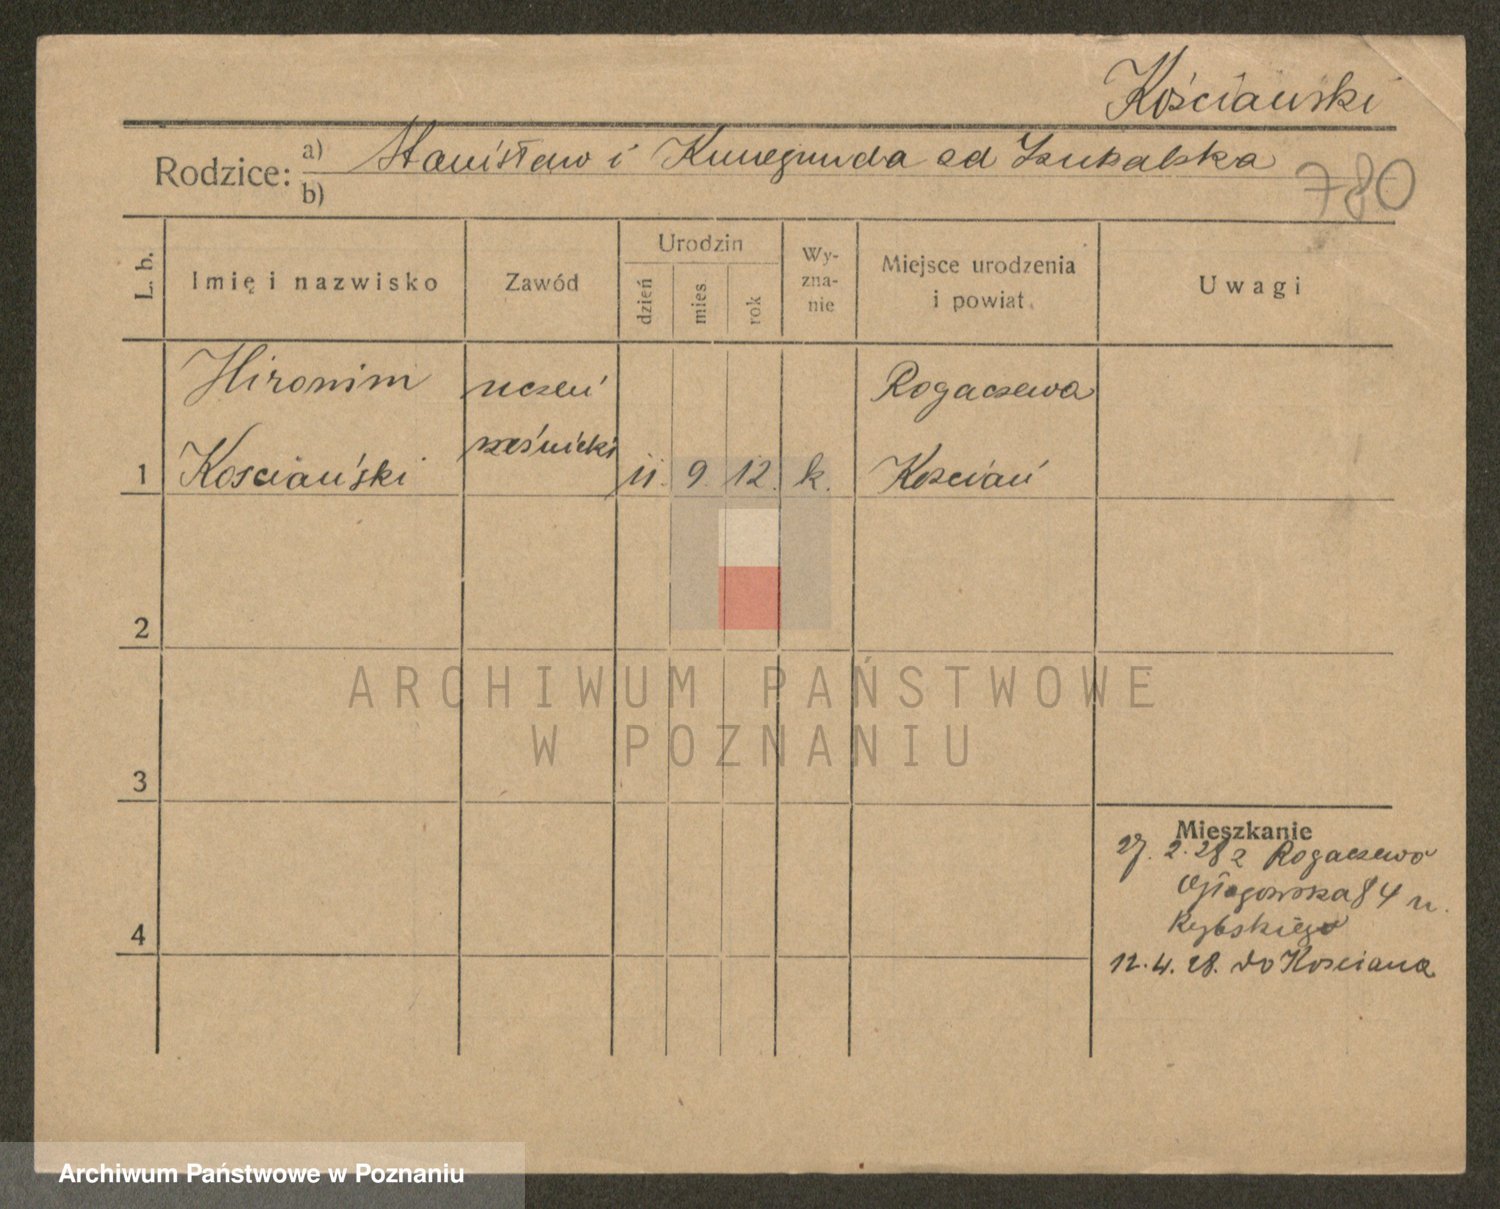 Kościański
Rodzice: a) Stanisław i Kunegunda
b)
780
L. b.
Imię i nazwisko
Zawód
Urodzin
dzień
mies.
rok
Wy-
zna-
nie
Miejsce urodzenia
i powiat.
Uwagi
Hironim
uczeń
Rogaczewo
rzeźnicki
1
Kosciański
11. 9. 12. k.
Kościań
2
3
4
ARCHIWUM PAŃSTWOWE
W POZNANIU
Mieszkanie
27. 2. 28 z Rogaczewo
84 u.
Rybskiego
12. 4. 28. do Kosciana
Archiwum Państwowe w Poznaniu